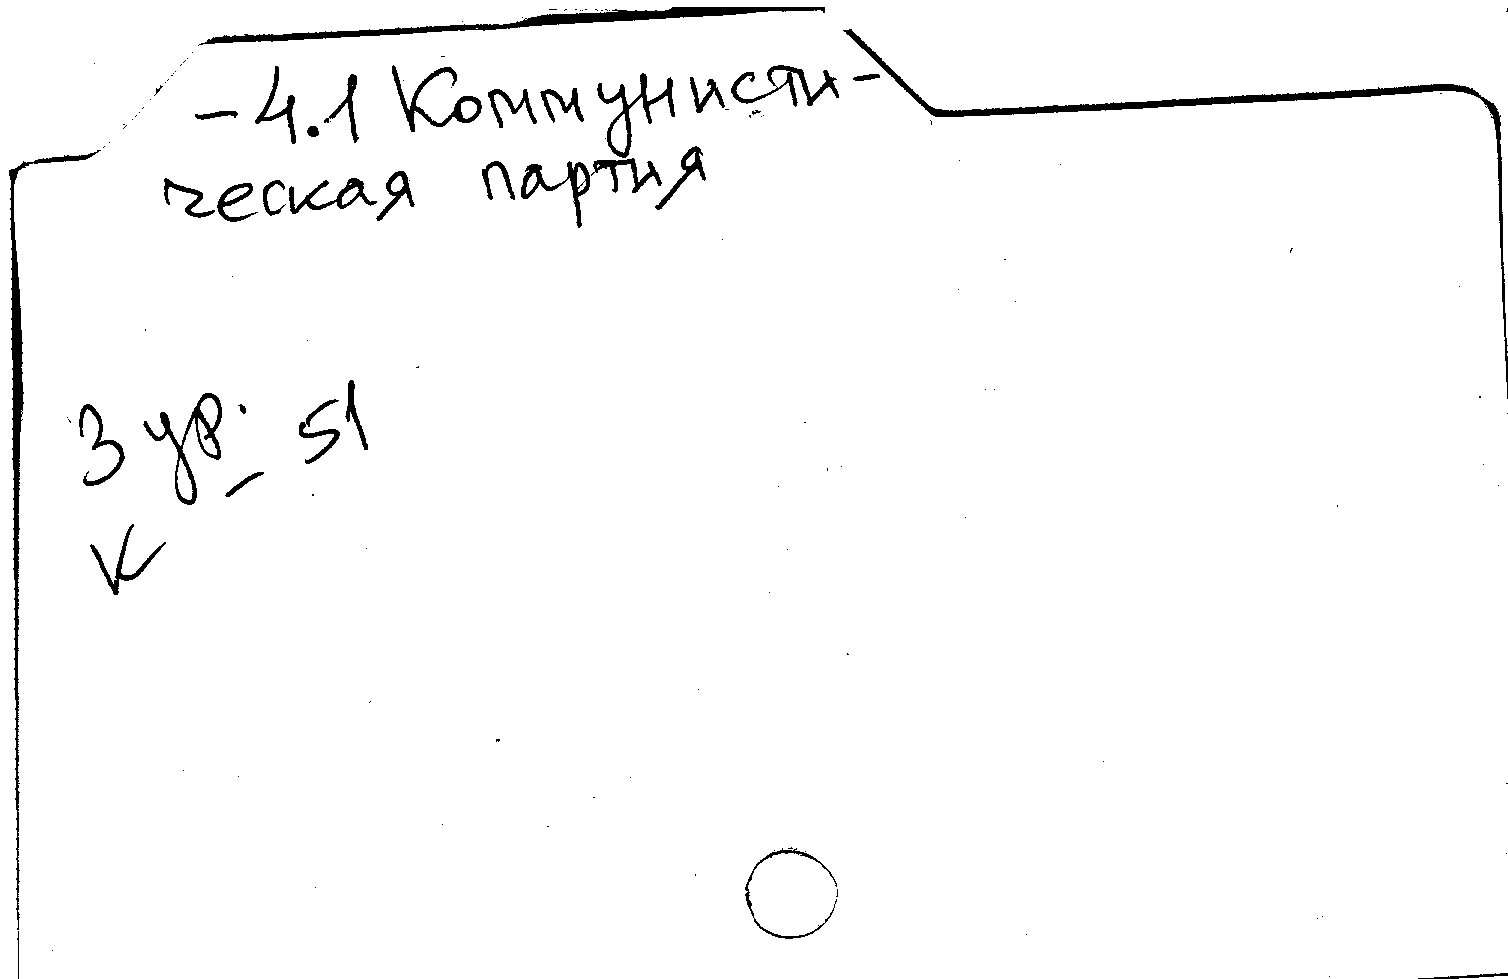 -4.1 Коммунисти-
ческая партия
3 ур. 51
К